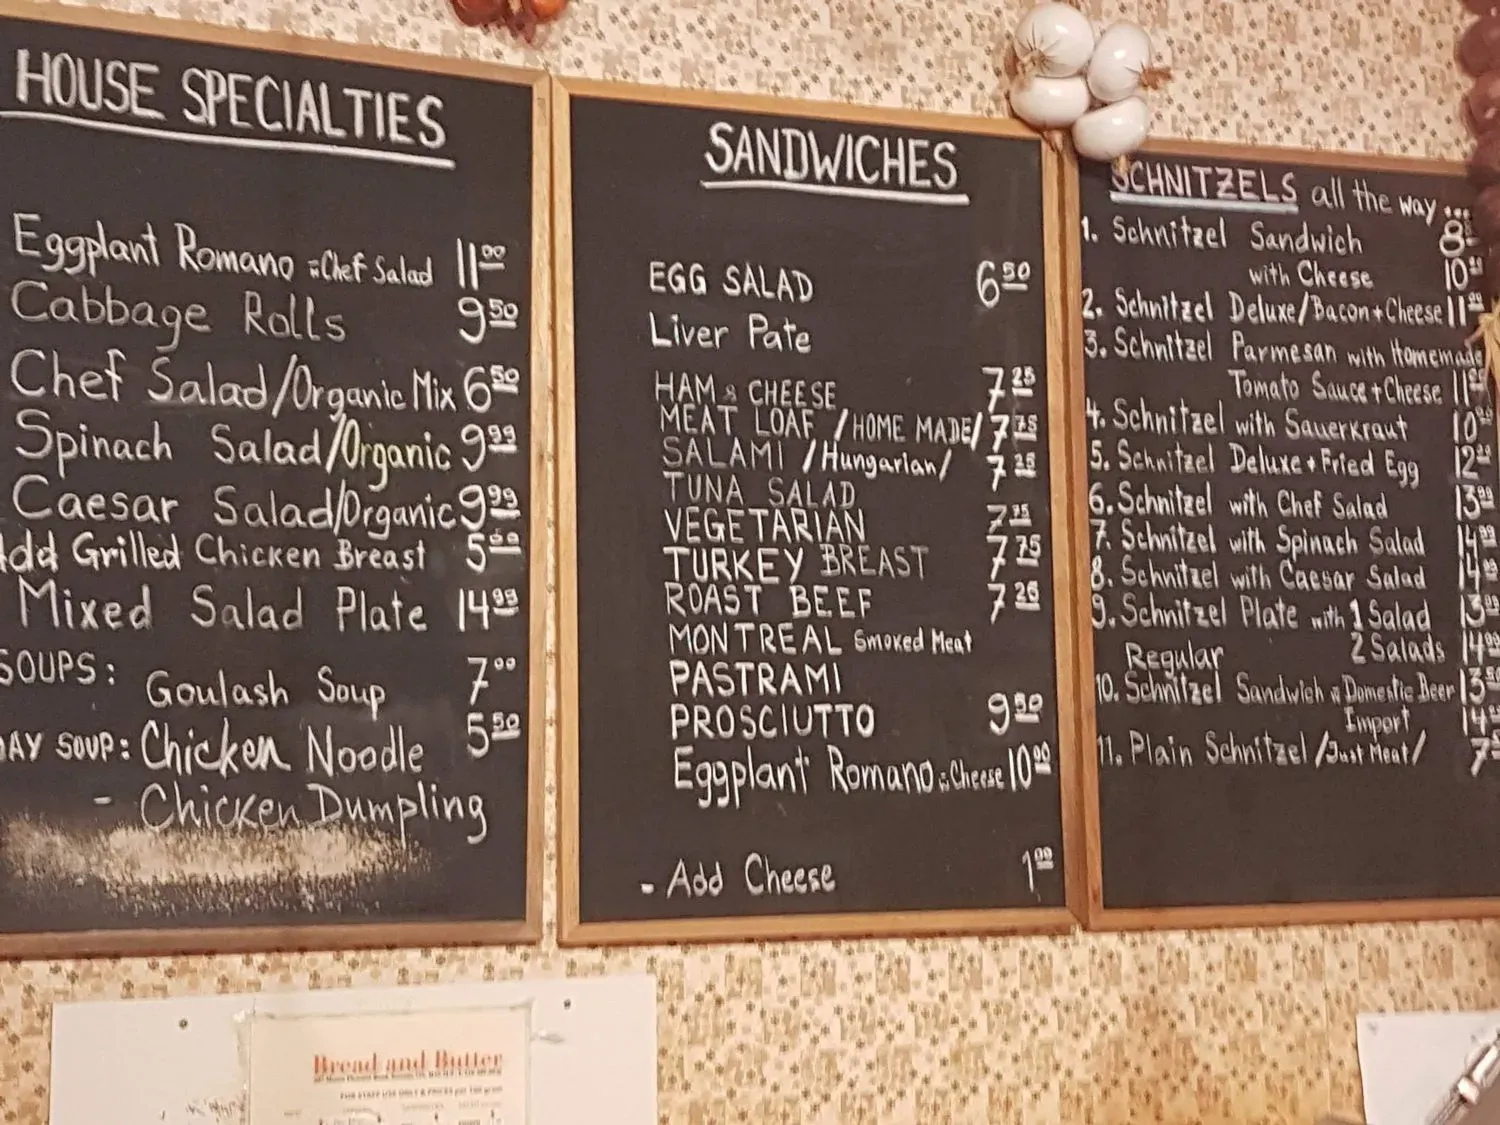 HOUSE SPECIALTIES
Eggplant Romano w Chef Salad 11 00
Cabbage Rolls 9 50
Chef Salad/Organic Mix 6 50
Spinach Salad/Organic 9 99
Caesar Salad/Organic 9 99
Add Grilled Chicken Breast 5 00
Mixed Salad Plate 14 99
SOUPS: Goulash Soup 7 00
DAY SOUP: Chicken Noodle 5 50
- Chicken Dumpling
SANDWICHES
EGG SALAD 6 50
Liver Pate
HAM & CHEESE 7 25
MEAT LOAF /HOME MADE/ 7 75
SALAMI /Hungarian/ 7 25
TUNA SALAD
VEGETARIAN 7 75
TURKEY BREAST 7 75
ROAST BEEF 7 26
MONTREAL Smoked Meat
PASTRAMI
PROSCIUTTO 9 50
Eggplant Romano w Cheese 10 00
- Add Cheese 1 00
SCHNITZELS all the way ...
1. Schnitzel Sandwich 8
with Cheese 10
2. Schnitzel Deluxe/Bacon + Cheese 11
3. Schnitzel Parmesan with Homemade
Tomato Sauce + Cheese 11
4. Schnitzel with Sauerkraut 10
5. Schnitzel Deluxe + Fried Egg 12
6. Schnitzel with Chef Salad 13 99
7. Schnitzel with Spinach Salad 14 99
8. Schnitzel with Caesar Salad 14
9. Schnitzel Plate with 1 Salad 13
Regular 2 Salads 14 99
10. Schnitzel Sandwich w Domestic Beer 13 50
Import 14
11. Plain Schnitzel /Just Meat/ 7
Bread and Butter
FOR STAFF USE ONLY